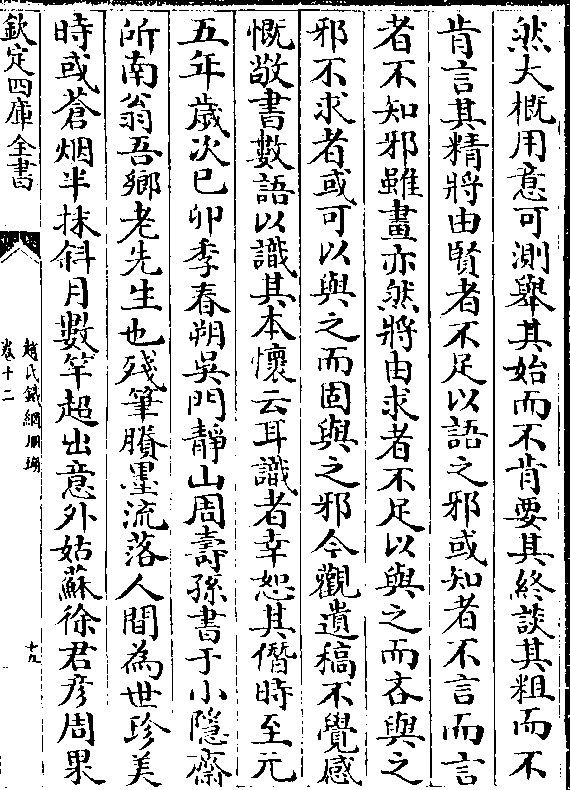 然大概用意可測舉其始而不肯要其終談其粗而不
肯言其精將由賢者不足以語之邪或知者不言而言
者不知邪雖畫亦然將由求者不足以與之而吝與之
邪不求者或可以與之而固與之邪今觀遺稿不覺感
慨敬書數語以識其本懷云耳識者幸恕其僭時至元
五年歲次己卯季春朔吳門靜山周壽孫書于小隱齋
所南翁吾鄉老先生也殘筆賸墨流落人間為世珍美
時或蒼烟半抹斜月數竿超出意外姑蘇徐君彦周果
欽定四庫全書
趙氏鐵網珊瑚
卷十二
十九